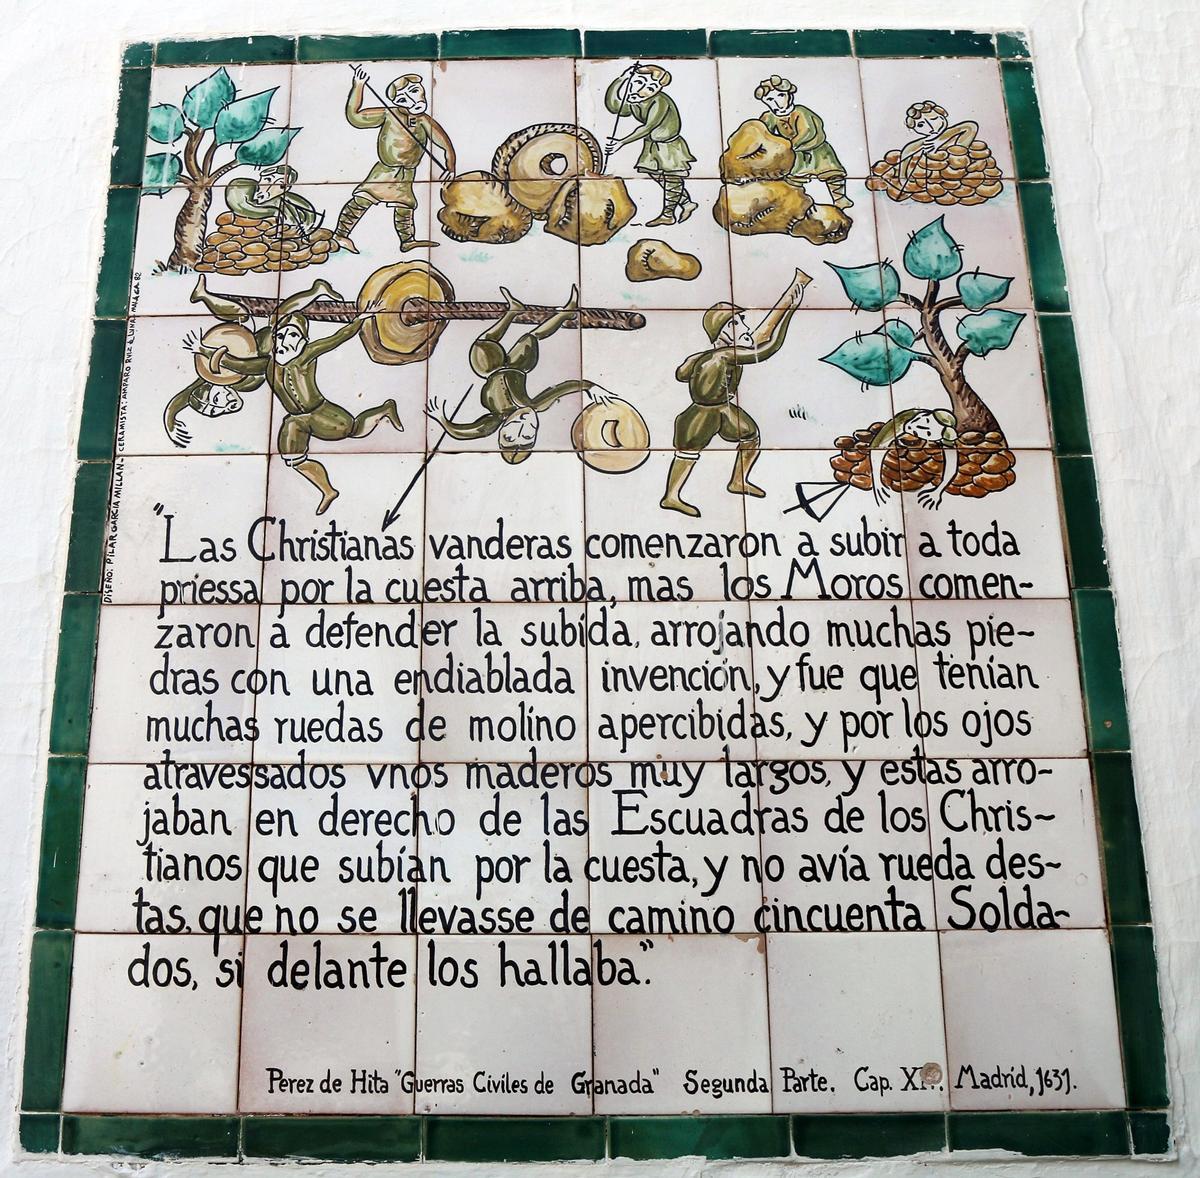 "Las Christianas vanderas comenzaron a subir a toda
priessa por la cuesta arriba, mas los Moros comen-
zaron a defender la subida, arrojando muchas pie-
dras con una endiablada invención, y fue que tenían
muchas ruedas de molino apercibidas, y por los ojos
atravessados vnos maderos muy largos, y estas arro-
jaban en derecho de las Escuadras de los Chris-
tianos que subían por la cuesta, y no avía rueda des-
tas, que no se llevasse de camino cincuenta Solda-
dos, si delante los hallaba."
Perez de Hita "Guerras Civiles de Granada" Segunda Parte. Cap. Madrid, 1631.
DISEÑO: PILAR GARCIA MILLAN - CERAMISTA: AMPARO RUIZ de LUNA. MALAGA 82